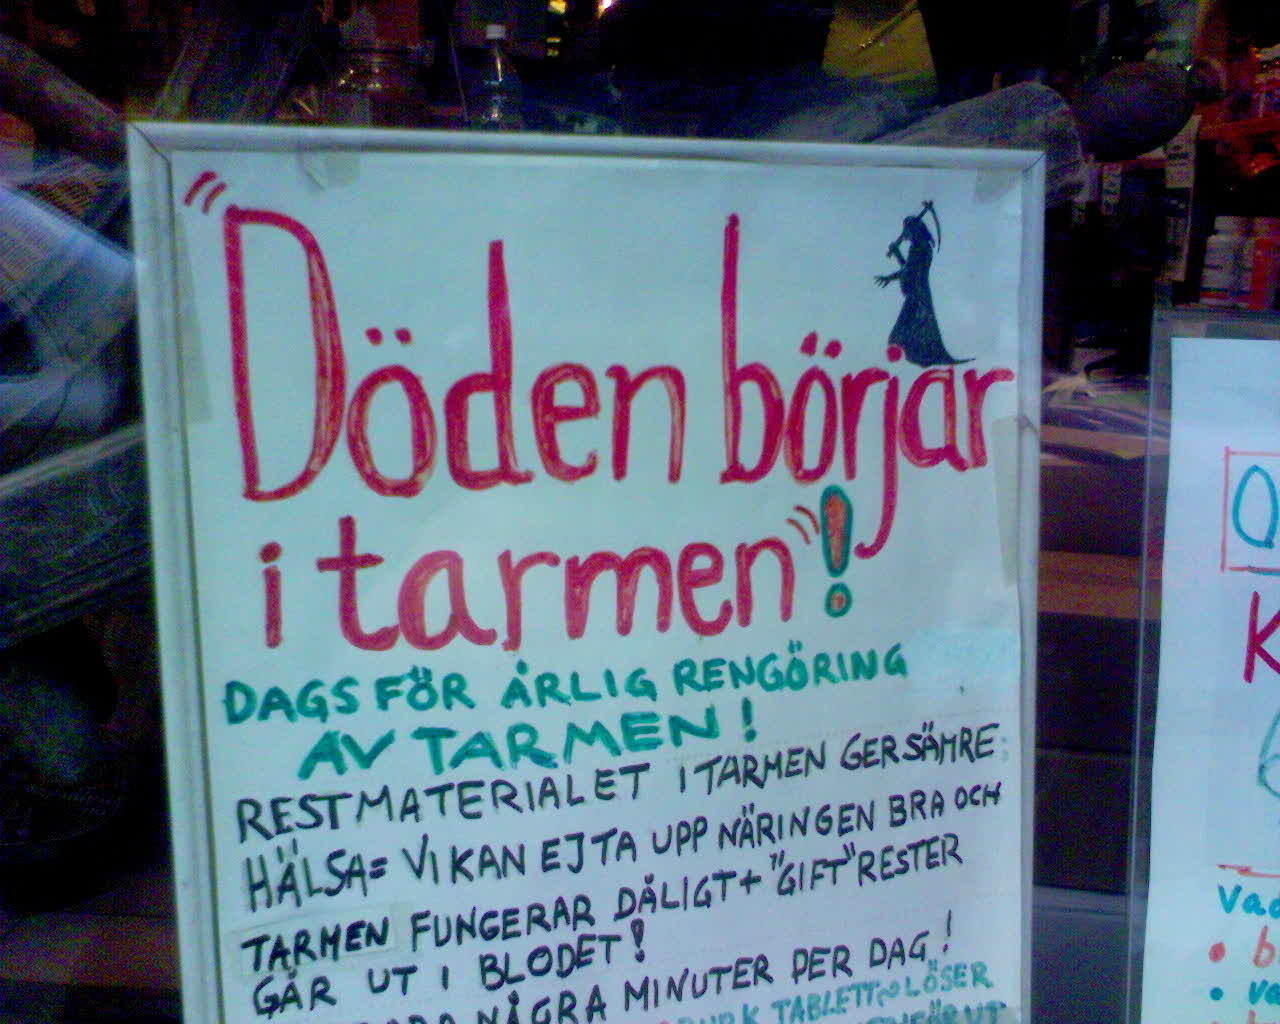 "Döden börjar
i tarmen"!
DAGS FÖR ÅRLIG RENGÖRING
AV TARMEN!
RESTMATERIALET I TARMEN GER SÄMRE
HÄLSA= VI KAN EJ TA UPP NÄRINGEN BRA OCH
TARMEN FUNGERAR DÅLIGT + "GIFT" RESTER
GÅR UT I BLODET!
NÅGRA MINUTER PER DAG!
TABLETT LÖSER